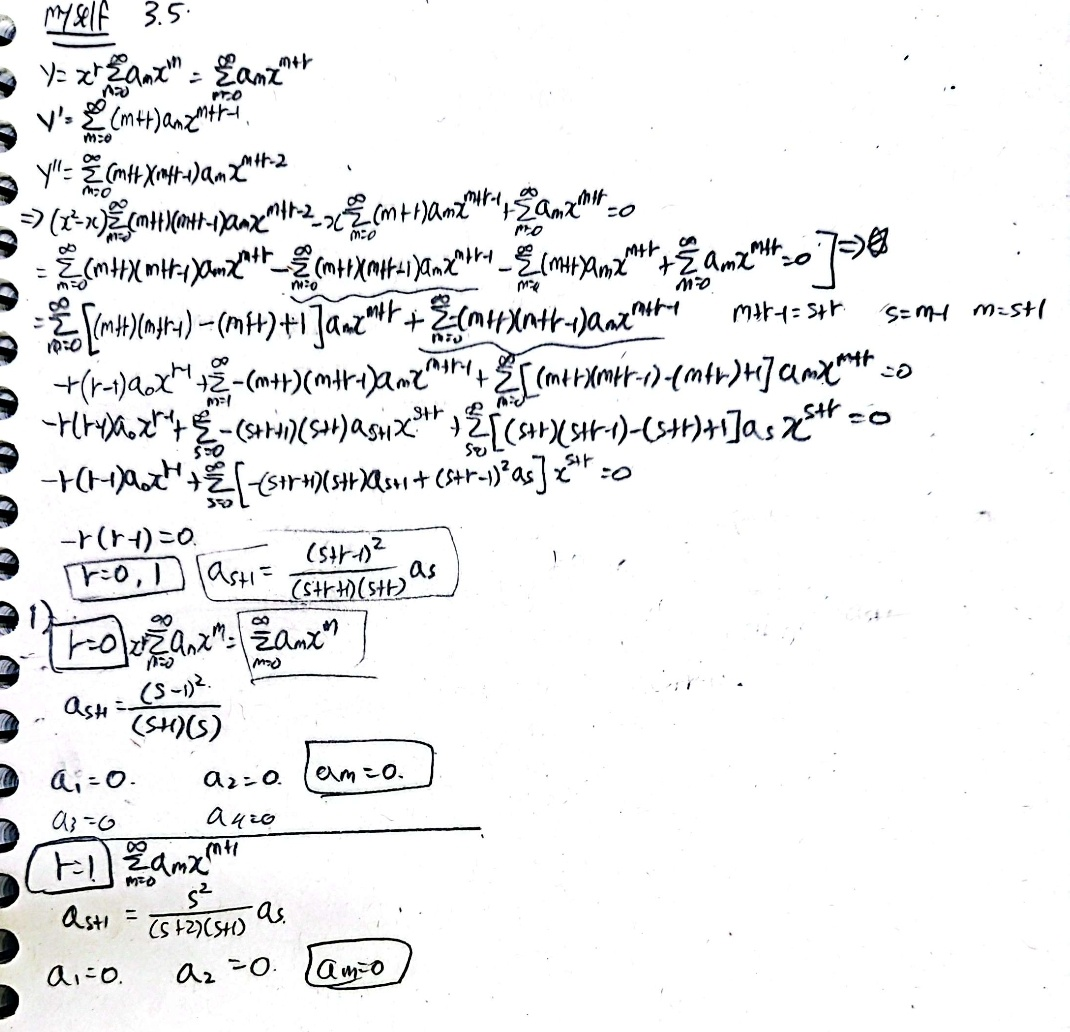 myself 3.5.
y = x^r ∑_{m=0}^∞ a_m x^m = ∑_{m=0}^∞ a_m x^{m+r}
y' = ∑_{m=0}^∞ (m+r) a_m x^{m+r-1}.
y'' = ∑_{m=0}^∞ (m+r)(m+r-1) a_m x^{m+r-2}
⇒ (x²-x) ∑_{m=0}^∞ (m+r)(m+r-1) a_m x^{m+r-2} - x ∑_{m=0}^∞ (m+r) a_m x^{m+r-1} + ∑_{m=0}^∞ a_m x^{m+r} = 0
= ∑_{m=0}^∞ (m+r)(m+r-1) a_m x^{m+r} - ∑_{m=0}^∞ (m+r)(m+r-1) a_m x^{m+r-1} - ∑_{m=0}^∞ (m+r) a_m x^{m+r} + ∑_{m=0}^∞ a_m x^{m+r} = 0 ] ⇒
= ∑_{m=0}^∞ [(m+r)(m+r-1) - (m+r) + 1] a_m x^{m+r} + ∑_{m=0}^∞ -(m+r)(m+r-1) a_m x^{m+r-1} m+r-1 = s+r s = m-1 m = s+1
-r(r-1) a_0 x^{r-1} + ∑_{m=1}^∞ -(m+r)(m+r-1) a_m x^{m+r-1} + ∑_{m=0}^∞ [(m+r)(m+r-1) - (m+r) + 1] a_m x^{m+r} = 0
-r(r-1) a_0 x^{r-1} + ∑_{s=0}^∞ -(s+r+1)(s+r) a_{s+1} x^{s+r} + ∑_{s=0}^∞ [(s+r)(s+r-1) - (s+r) + 1] a_s x^{s+r} = 0
-r(r-1) a_0 x^{r-1} + ∑_{s=0}^∞ [-(s+r+1)(s+r) a_{s+1} + (s+r-1)² a_s] x^{s+r} = 0
-r(r-1) = 0.
r = 0, 1 a_{s+1} = (s+r-1)² / (s+r+1)(s+r) a_s
1) r = 0 x^r ∑_{m=0}^∞ a_m x^m = ∑_{m=0}^∞ a_m x^m
a_{s+1} = (s-1)² / (s+1)(s)
a_1 = 0. a_2 = 0. a_m = 0.
a_3 = 0 a_4 = 0
r = 1 ∑_{m=0}^∞ a_m x^{m+1}
a_{s+1} = s² / (s+2)(s+1) a_s.
a_1 = 0. a_2 = 0. a_m = 0